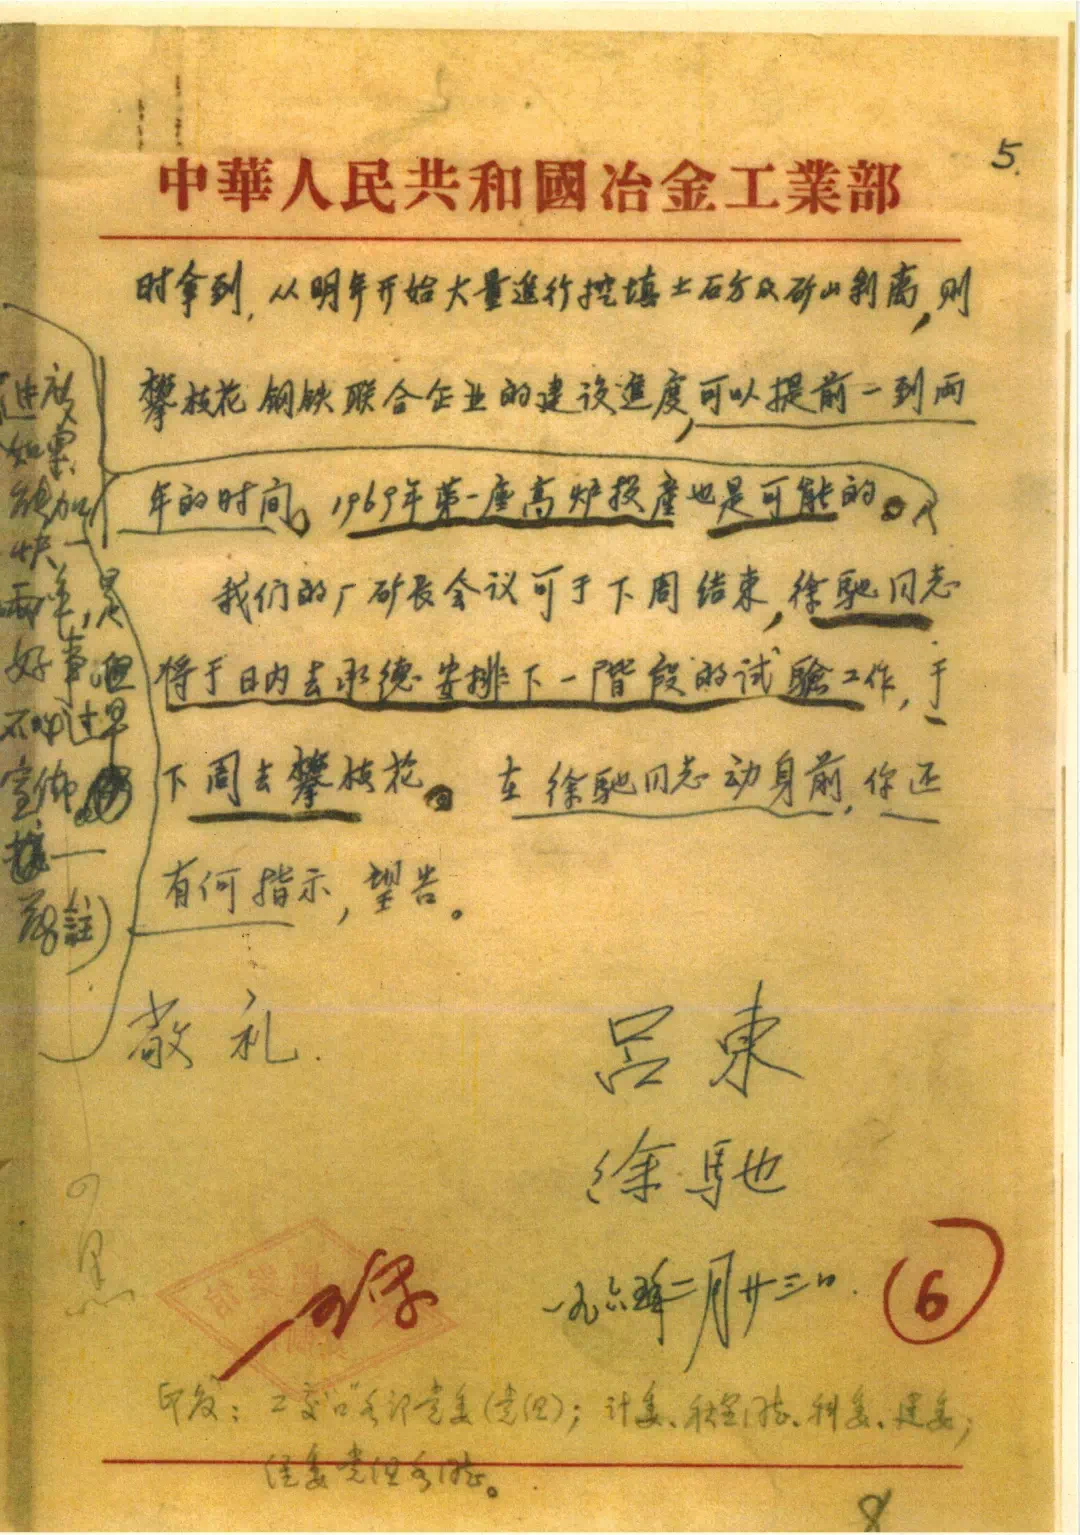 5.
中華人民共和國冶金工業部
时拿到，从明年开始大量進行挖填土石方及矿山剥离，则
攀枝花钢铁联合企业的建设進度，可以提前一到两
年的时间。1969年第一座高炉投產也是可能的。
我们的厂矿长会议可于下周结束，徐馳同志
将于日内去承德安排下一階段的试驗工作，于
下周去攀枝花。在徐馳同志动身前，你还
有何指示，望告。
敬礼.
吕東
徐馳
一九六五年二月廿三日.
6
如果
能加
快一
两年，是
好事，但
不必过早
宣佈
註)
印发：工交口各部党委(党组)；计委、科委、建委；
经委党组各同志。
8